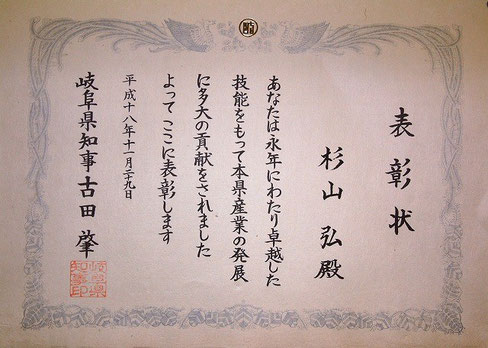 表彰状
杉山 弘殿
あなたは永年にわたり卓越した
技能をもって本県産業の発展
に多大の貢献をされました
よってここに表彰します
平成十八年十一月二十九日
岐阜県知事古田 肇
岐阜県
知事印